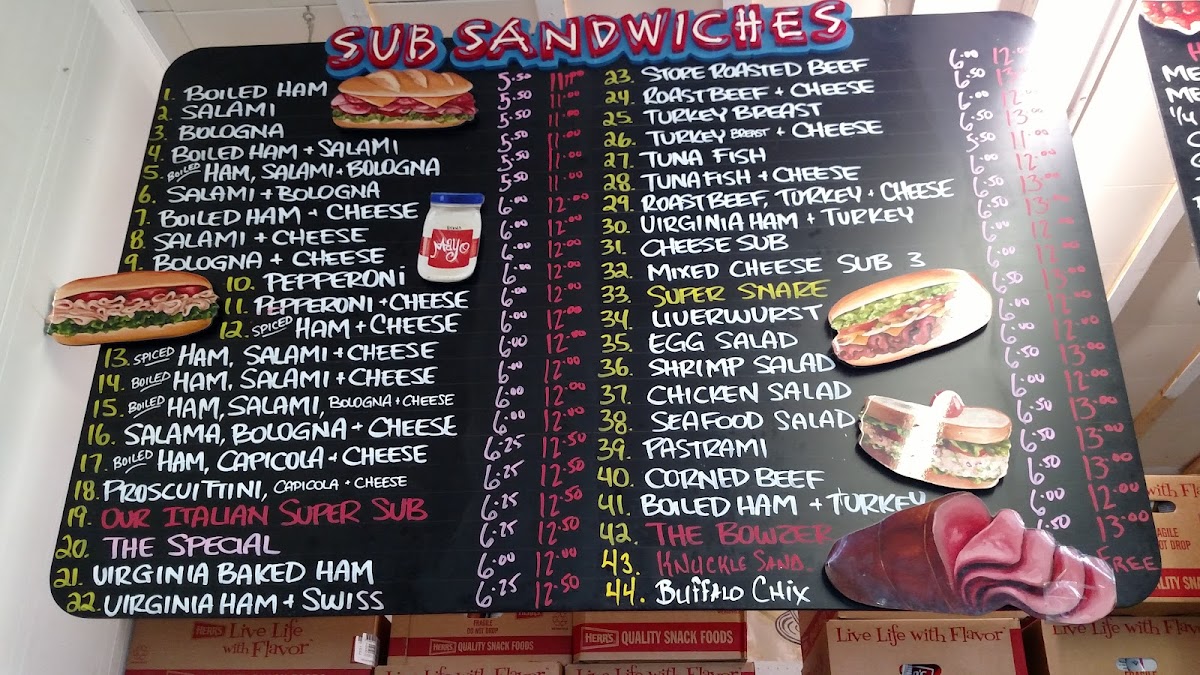 SUB SANDWICHES
1. BOILED HAM 5.50 11.00
2. SALAMI 5.50 11.00
3. BOLOGNA 5.50 11.00
4. BOILED HAM + SALAMI 5.50 11.00
5. BOILED HAM, SALAMI + BOLOGNA 5.50 11.00
6. SALAMI + BOLOGNA 5.50 11.00
7. BOILED HAM + CHEESE 6.00 12.00
8. SALAMI + CHEESE 6.00 12.00
9. BOLOGNA + CHEESE 6.00 12.00
10. PEPPERONI 6.00 12.00
11. PEPPERONI + CHEESE 6.00 12.00
12. SPICED HAM + CHEESE 6.00 12.00
13. SPICED HAM, SALAMI + CHEESE 6.00 12.00
14. BOILED HAM, SALAMI + CHEESE 6.00 12.00
15. BOILED HAM, SALAMI, BOLOGNA + CHEESE 6.00 12.00
16. SALAMA, BOLOGNA + CHEESE 6.00 12.00
17. BOILED HAM, CAPICOLA + CHEESE 6.25 12.50
18. PROSCUITTINI, CAPICOLA + CHEESE 6.25 12.50
19. OUR ITALIAN SUPER SUB 6.25 12.50
20. THE SPECIAL 6.25 12.50
21. VIRGINIA BAKED HAM 6.00 12.00
22. VIRGINIA HAM + SWISS 6.25 12.50
MAYO
23. STORE ROASTED BEEF 6.00 12.00
24. ROAST BEEF + CHEESE 6.50 13.
25. TURKEY BREAST 6.00 12.
26. TURKEY BREAST + CHEESE 6.50 13.00
27. TUNA FISH 5.50 11.00
28. TUNA FISH + CHEESE 6.00 12.00
29. ROAST BEEF, TURKEY + CHEESE 6.50 13.00
30. VIRGINIA HAM + TURKEY 6.50 13.00
31. CHEESE SUB 6.00 12.00
32. MIXED CHEESE SUB 3 6.00 12.00
33. SUPER SNARE 6.50 13.00
34. LIVERWURST 6.00 12.00
35. EGG SALAD 6.00 12.00
36. SHRIMP SALAD 6.50 13.00
37. CHICKEN SALAD 6.00 12.00
38. SEAFOOD SALAD 6.50 13.00
39. PASTRAMI 6.50 13.00
40. CORNED BEEF 6.50 13.00
41. BOILED HAM + TURKEY 6.00 12.00
42. THE BOWZER 6.50 13.00
43. KNUCKLE SAND. FREE
44. BUFFALO CHIX
HERR'S Live Life with Flavor
FRAGILE
DO NOT DROP
HERR'S QUALITY SNACK FOODS
HERR'S QUALITY SNACK FOODS
Live Life with Flavor
with Flavor
FRAGILE
QUALITY SNACK